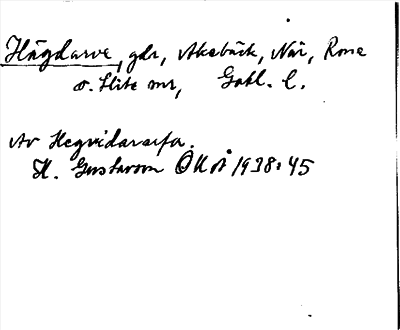 Hägdarve, gdr, Akebäck, När, Rone
o. Slite mr, Gotl. l.
Av Hegvidararfa.
H. Gustavson ÖNoÅ 1938:45